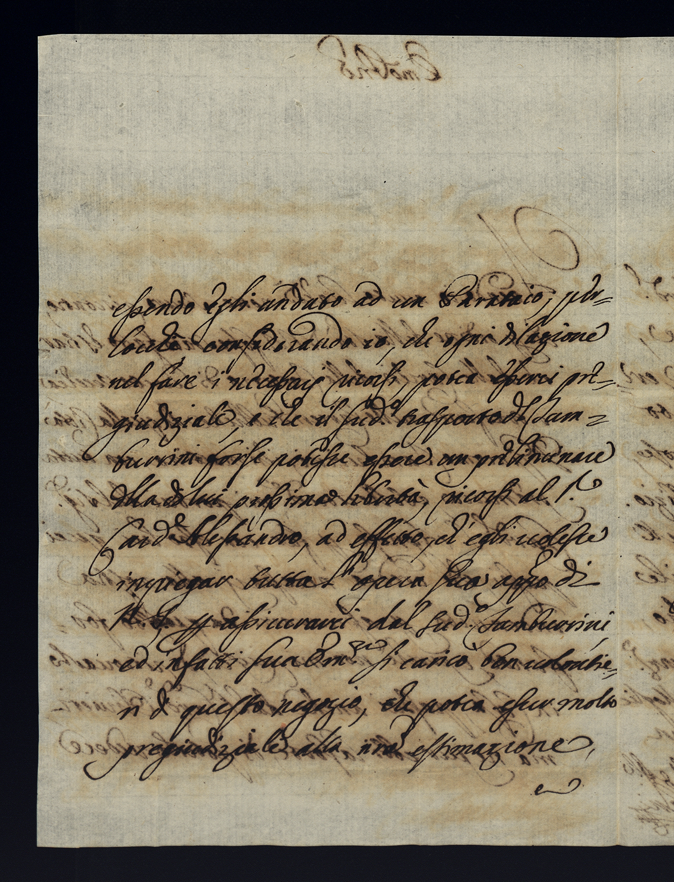 essendo egli andato ad un Paretaio, per-
locchè considerando io, che ogni dilazione
nel fare i necessarj ricorsi potea esserci pre-
giudiziale, e che il sud.º trasporto del Tam-
burrini forse potesse essere un preliminare
della di lui prossima libertà, ricorsi al S.r
Card.e Alessandro, ad effetto, ch'egli volesse
impiegar tutta l' opera sua appo di
assicurarci del sud.º Tamburrini,
ed infatti sua Em.za si caricò ben volentie-
ri di questo negozio, che potea esser molto
pregiudiziale alla nra estimazione,
e